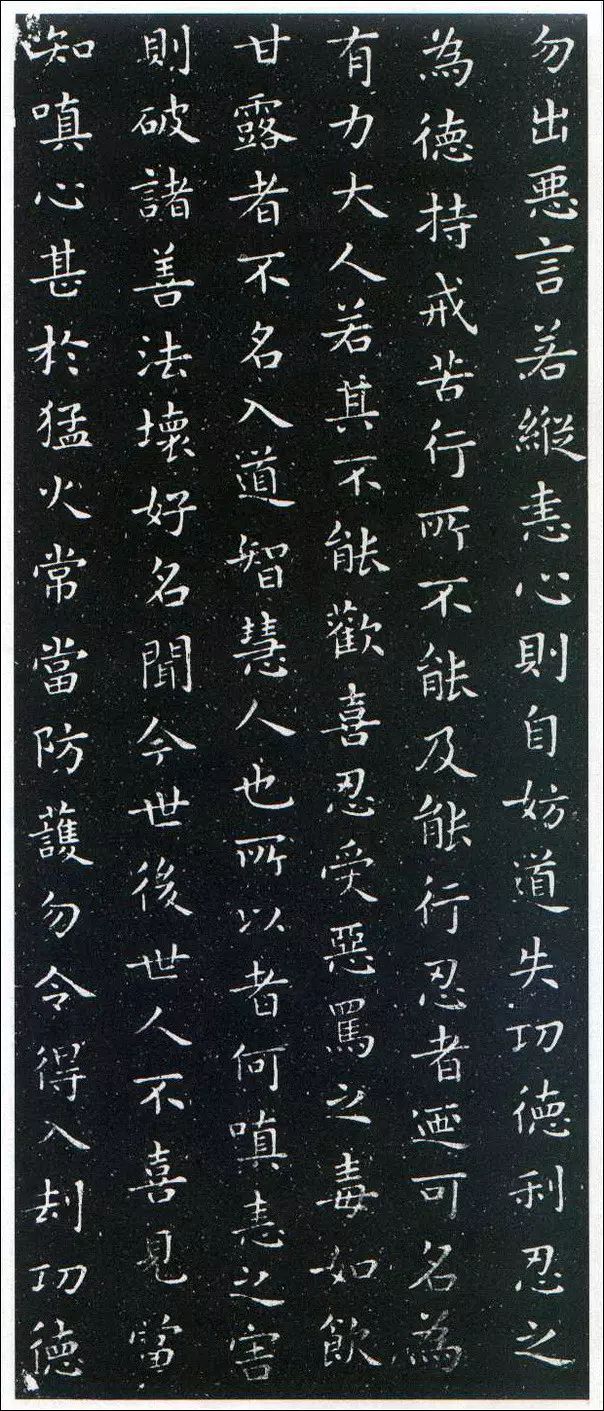 勿出悪言若縱恚心則自妨道失功德利忍之
為德持戒苦行所不能及能行忍者迺可名為
有力大人若其不能歡喜忍受惡罵之毒如飲
甘露者不名入道智慧人也所以者何嗔恚之害
則破諸善法壞好名聞今世後世人不喜見當
知嗔心甚於猛火常當防護勿令得入刦功德